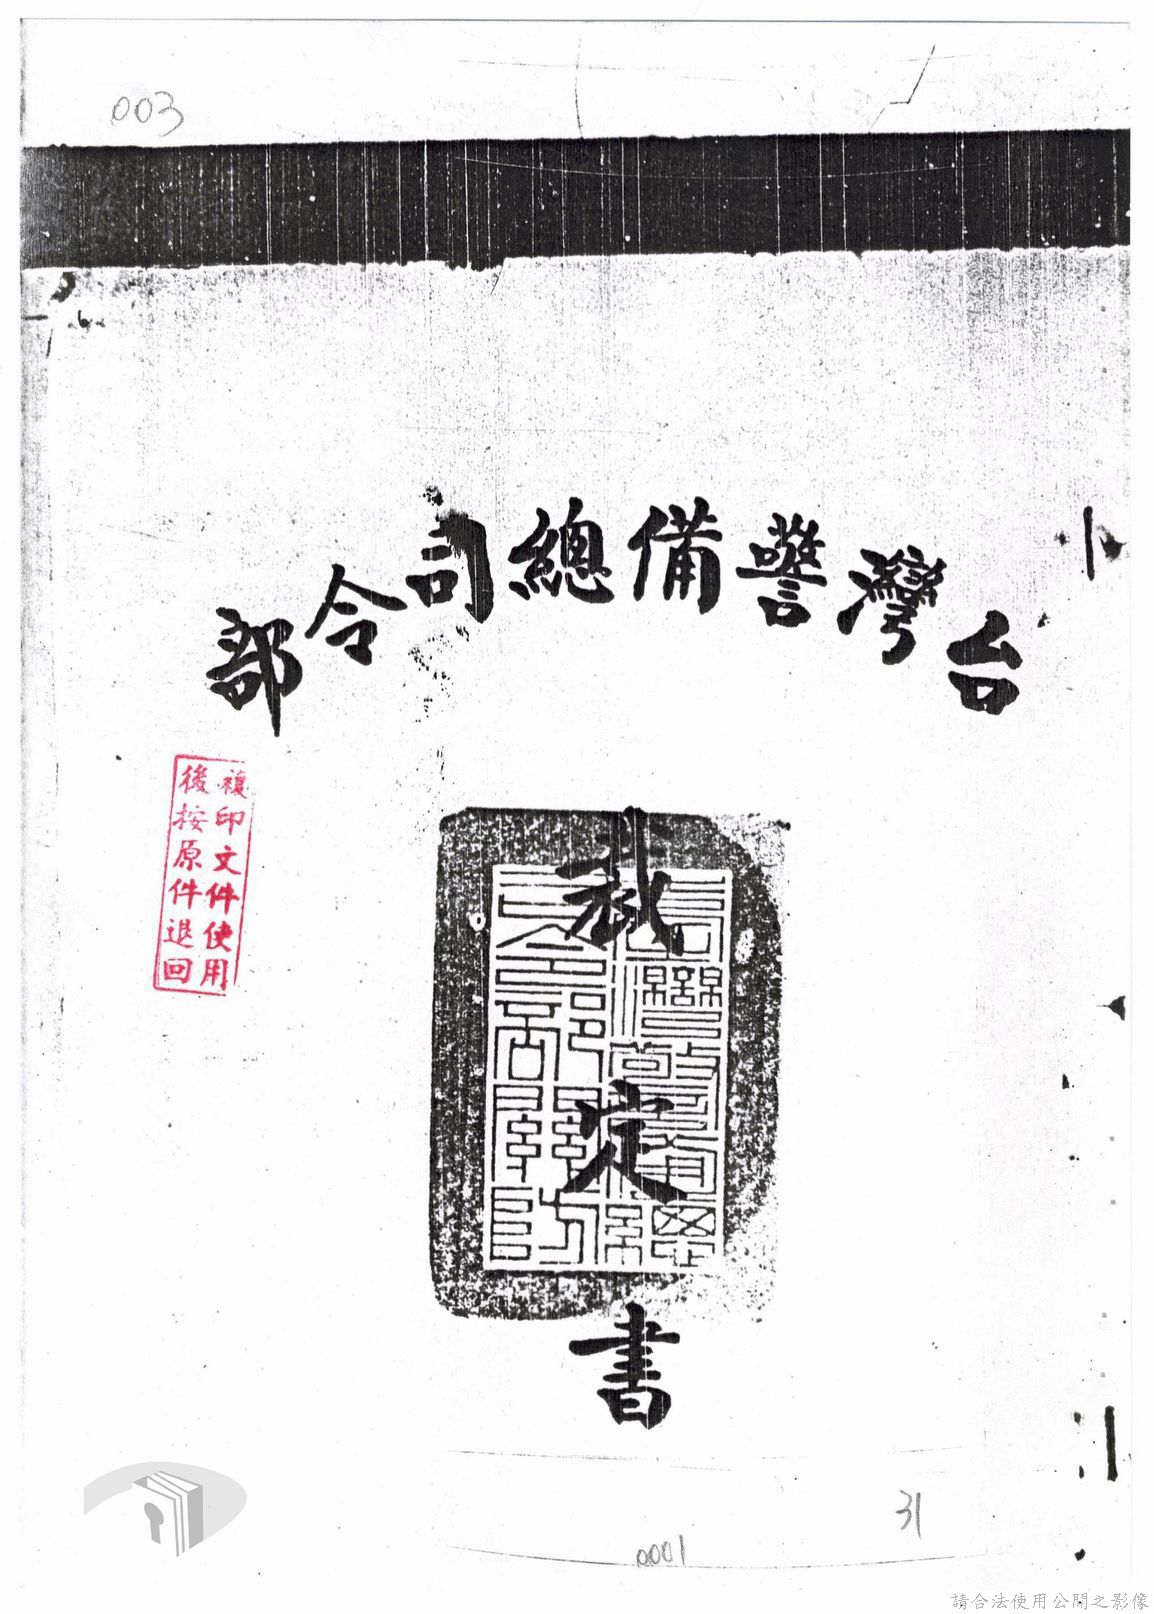 003
台灣警備總司令部
複印文件使用
後按原件退回
裁定書
31
0001
請合法使用公開之影像